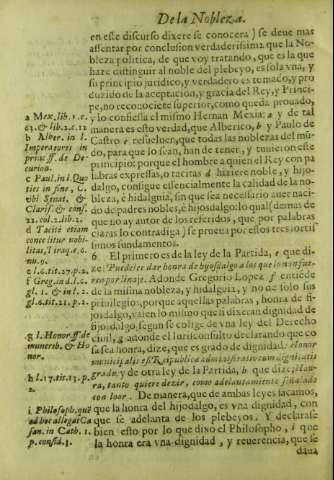 De la Nobleza.
en este discurso dixere se conocera) se deve mas
assentar por conclusion verdaderissima que la No-
bleza politica, de que voy tratando, que es la que
haze distinguir al noble del plebeyo, es sola vna, y
su principio juridico, y verdadero es tomado, y pro
duzido de la aceptacion, y gracia del Rey, y Princi-
pe, no reconociēte superior, como queda provado,
y lo confiessa el mismo Hernan Mexia: a y de tal
manera es esto verdad, que Alberico, b y Paulo de
Castro c resuelven, que todas las noblezas del mū-
do, para que lo sean, han de tener, y tuvieron este
principio: porque el hombre a quien el Rey con pa
labras expressas, o tacitas d haziere noble, y hijo-
dalgo, consigue essencialmente la calidad de la no-
bleza, e hidalguia, sin que sea necessario aver naci-
do de padres nobles, è hijosdalgo: lo qual (demas de
que no ay autor de los referidos, que por palabras
claras lo contradiga) se prueva por estos tres fortis
simos fundamentos.
6 El primero es de la ley de la Partida, e que di-
ze: Puedeles dar honra de hijosdalgo a los que lo non fue-
ren por linage. Adonde Gregorio Lopez f entiēde
de la misma nobleza, y hidalguia, y no de solo sus
privilegios, porque aquellas palabras, honra de fi-
jodalgo, valen lo mismo que si dixeran dignidad de
hijodalgo, segun se colige de vna ley del Derecho
civil, g adonde el Iurisconsulto declarando que co
sa sea honra, dize, que es grado de dignidad: Honor
municipalis est Reipublicæ administratio cum dignitatis
gradu, y de otra ley de la Partida, h que dize, Hon-
ra, tanto quiere dezir, como adelantamiento señalado
con loor. De manera, que de ambas leyes sacamos,
que la honra del hijodalgo, es vna dignidad, con
que se adelanta de los plebeyos. Y declarase
bien esto por lo que dixo el Philosopho, i que
la honra era vna dignidad, y reverencia, que se
dava
a Mex. lib. 1. c.
b Alber. in l.
Imperatores in
princ. ff. de De-
curion.
c Paul. in l. Quo
ties in fine, C.
vbi Senat. &
Clarif. & cons.
d Tacitè etiam
concebitur nobi-
litas, Tiraq. c. 6.
f Greg. in d. l. 6.
g l. Honor. ff. de
munerib. & Ho
nor.
i Philosoph. quē
ad hoc allegat Ca
san. in Cath. 1.
p. consid. 1.